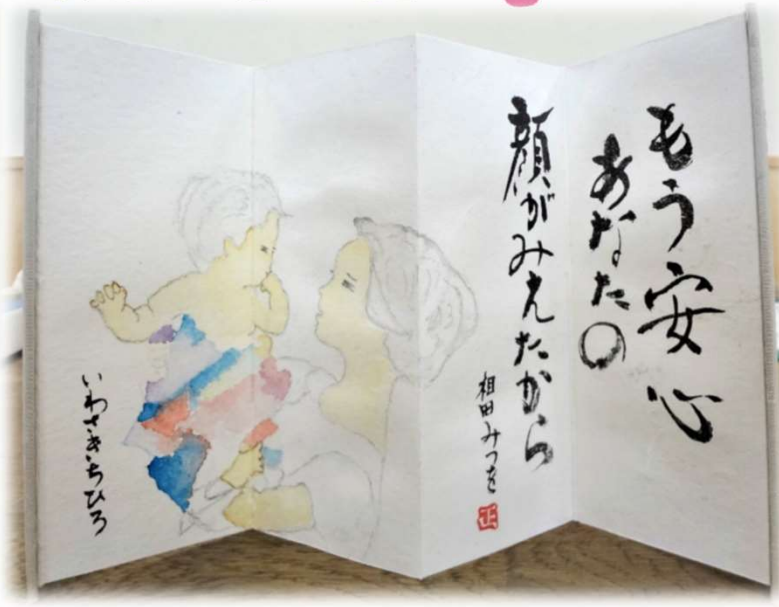 もう安心
あなたの
顔がみえたから
相田みつを
正
いわさきちひろ